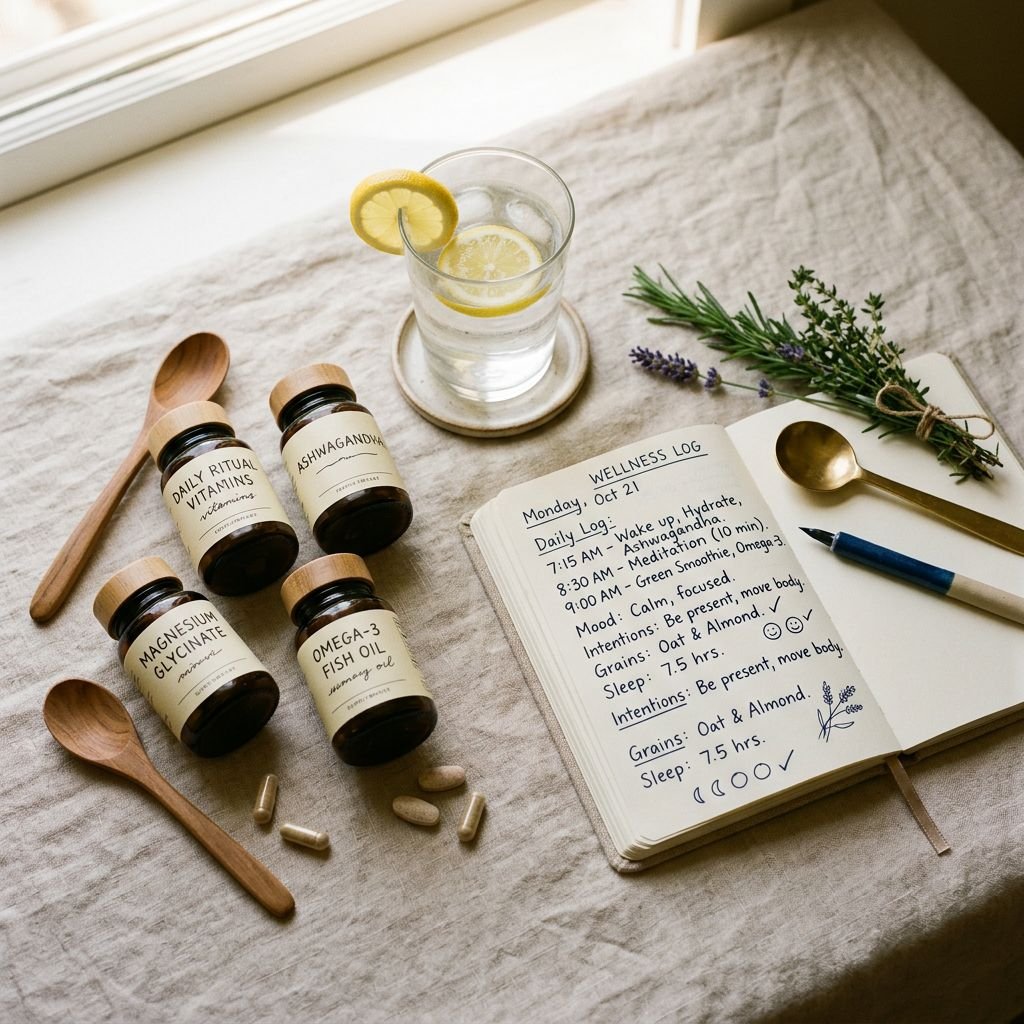 DAILY RITUAL
VITAMINS
vitamins
ASHWAGANDHA
MAGNESIUM
GLYCINATE
OMEGA-3
FISH OIL
WELLNESS LOG
Monday,
Oct 21
Daily Log:
7:15 AM – Wake up, Hydrate,
Ashwagandha.
8:30 AM – Meditation (10 min).
9:00 AM – Green Smoothie, Omega-3.
Mood: Calm, focused.
Intentions: Be present, move body.
Grains: Oat & Almond. ✓
Sleep: 7.5 hrs.
Intentions: Be present, move body.
Grains: Oat & Almond.
Sleep: 7.5 hrs.